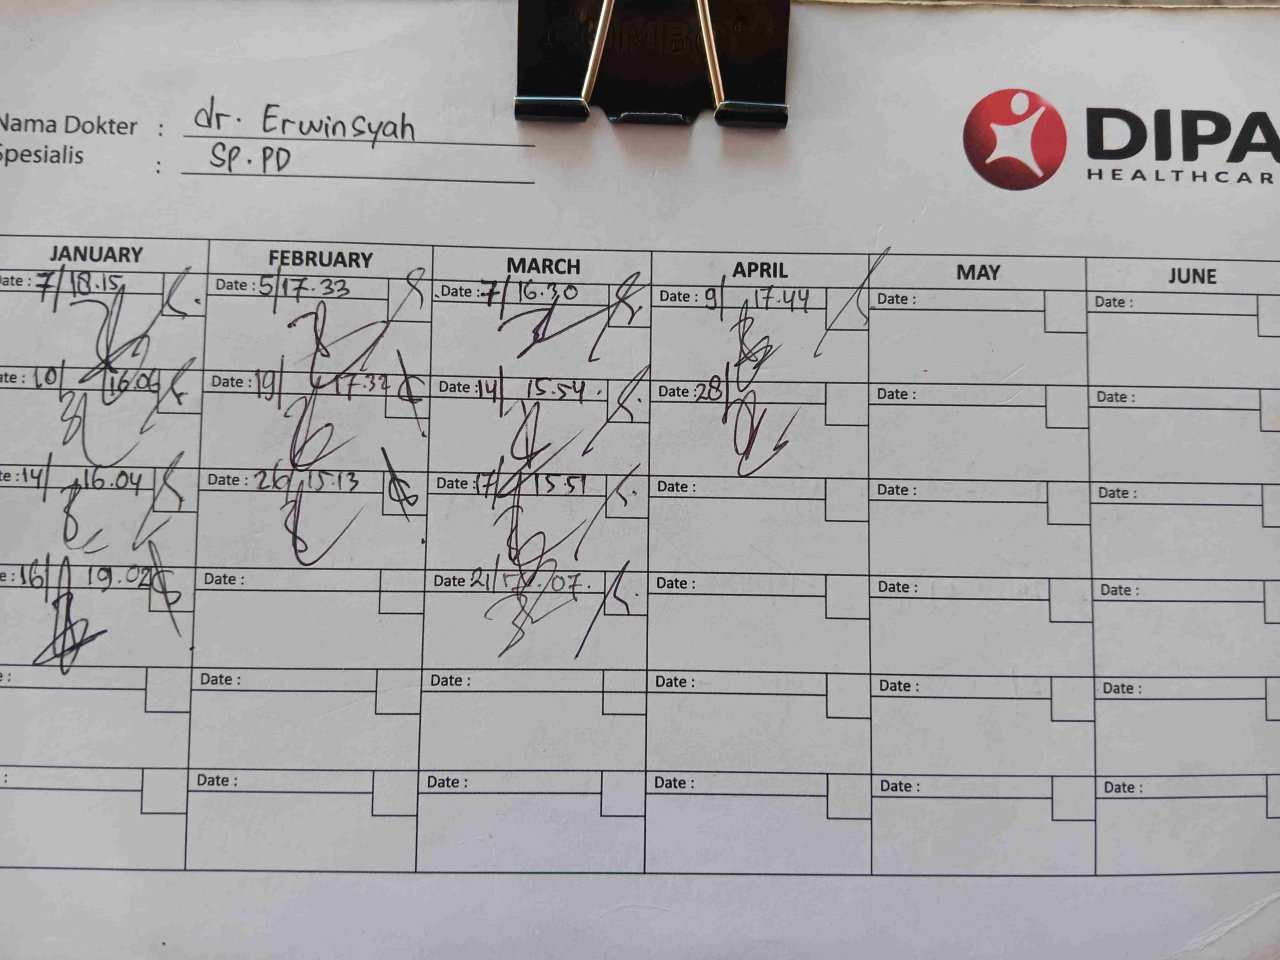 Nama Dokter : dr. Erwinsyah
Spesialis : Sp.PD
DIPA
HEALTHCAR
JANUARY FEBRUARY MARCH APRIL MAY JUNE
Date : 7/18.15 Date : 5/17.33 Date : 7/16.30 Date : 9/ 17.44 Date : Date :
ate : 10/ 16.06 Date : 19/ 17.32 Date : 14/ 15.54 Date : 28/ Date : Date :
te : 14/ 16.04 Date : 26/ 15.13 Date : 17/ 15.51 Date : Date : Date :
e : 16/ 19.02 Date : Date 21/ 07. Date : Date : Date :
e : Date : Date : Date : Date : Date :
: Date : Date : Date : Date : Date :